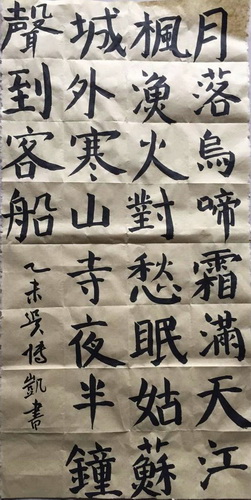 月落烏啼霜滿天江
楓漁火對愁眠姑蘇
城外寒山寺夜半鐘
聲到客船
乙未吳博凱書